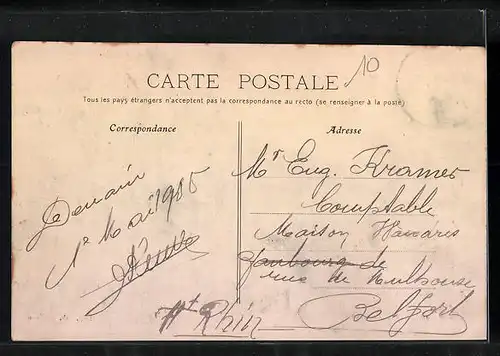 10
CARTE POSTALE
Tous les pays étrangers n'acceptent pas la correspondance au recto (se renseigner à la poste)
Correspondance
Adresse
Denain
1r Mai 1905
Mr Eug. Kramer
Comptable
Maison
faubourg de
rue de Mulhouse
Belfort
Ht Rhin